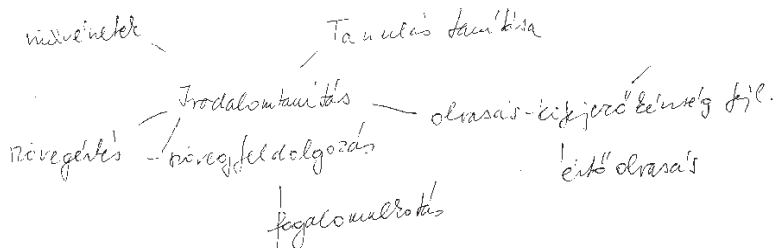 művészetek
Tanulás tanítása
Irodalomtanítás
olvasás-kifejezőkészség fejl.
szövegértés - szövegfeldolgozás
értő olvasás
fogalomalkotás